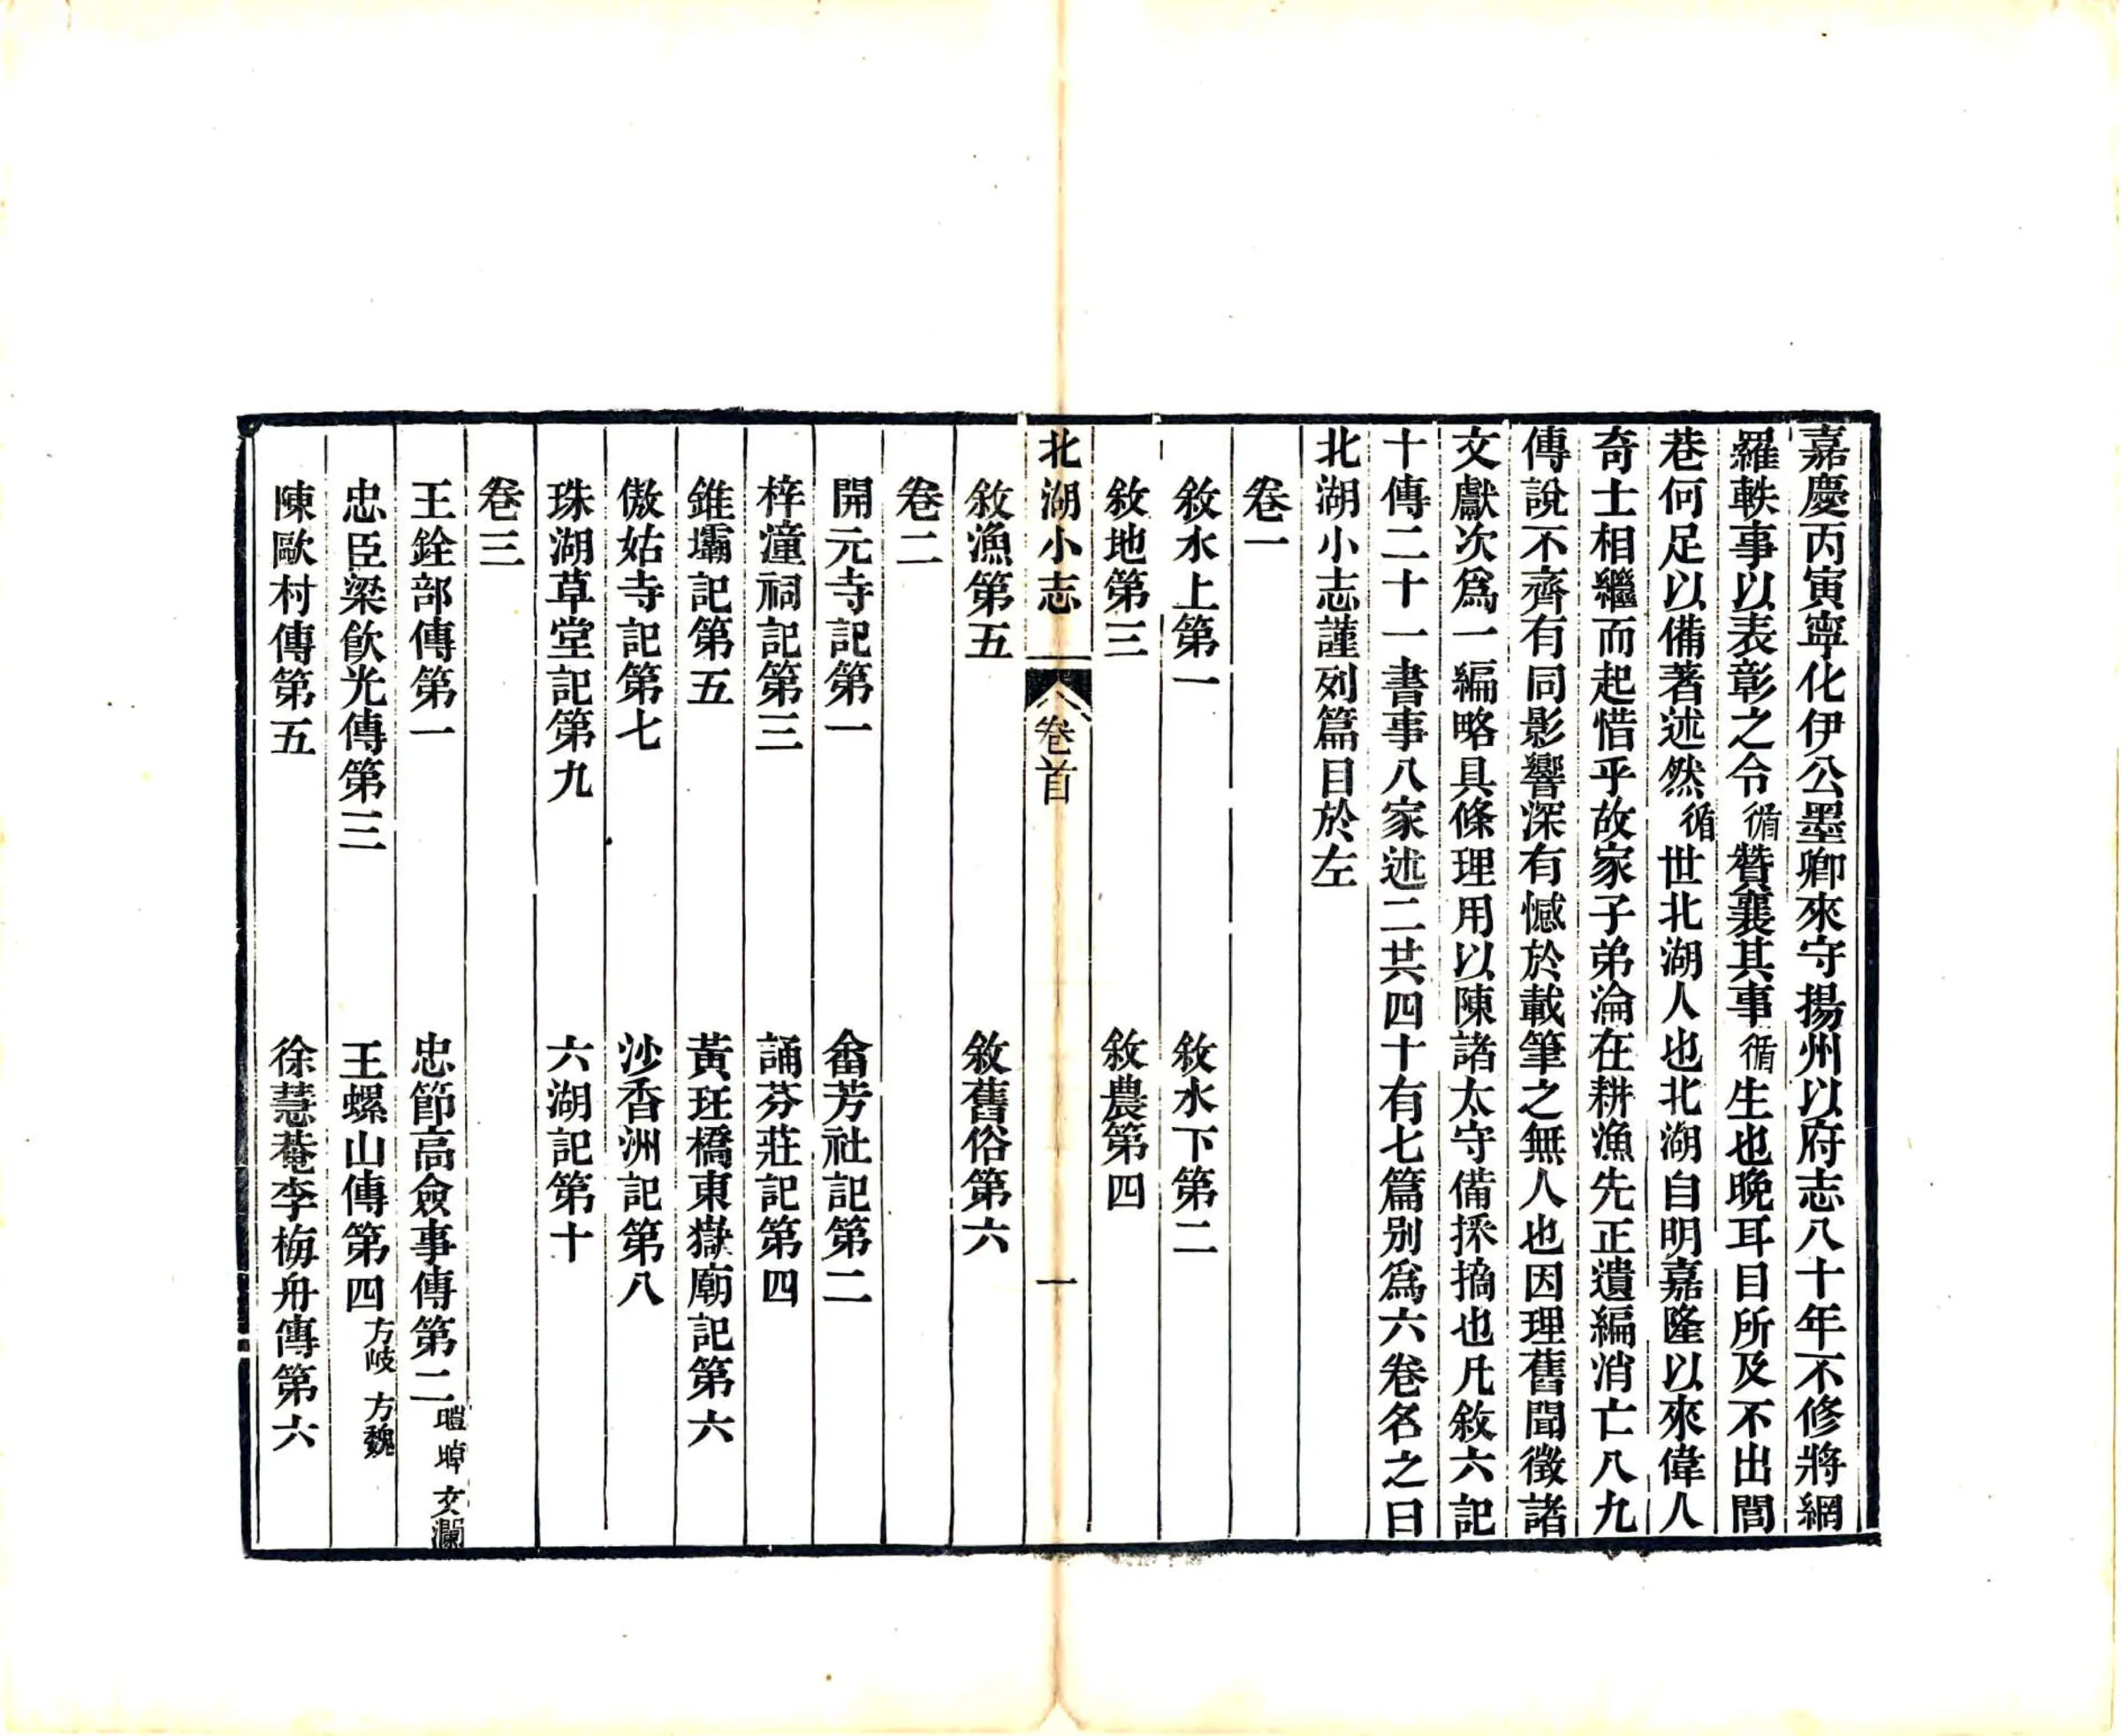 嘉慶丙寅寧化伊公墨卿來守揚州以府志八十年不修將網
羅軼事以表彰之令循贊襄其事循生也晚耳目所及不出閭
巷何足以備著述然循世北湖人也北湖自明嘉隆以來偉人
奇士相繼而起惜乎故家子弟淪在耕漁先正遺編消亡八九
傳說不齊有同影響深有憾於載筆之無人也因理舊聞徵諸
文獻次爲一編略具條理用以陳諸太守備採摘也凡敘六記
十傳二十一書事八家述二共四十有七篇別爲六卷名之曰
北湖小志謹列篇目於左
卷一
敘水上第一 敘水下第二
敘地第三 敘農第四
北湖小志 卷首 一
敘漁第五 敘舊俗第六
卷二
開元寺記第一 畬芳社記第二
梓潼祠記第三 誦芬莊記第四
錐壩記第五 黃玨橋東嶽廟記第六
傲姑寺記第七 沙香洲記第八
珠湖草堂記第九 六湖記第十
卷三
王銓部傳第一 忠節高僉事傳第二 曕 㬀 文瀾
忠臣梁飮光傳第三 王螺山傳第四 方岐 方魏
陳歐村傳第五 徐慧菴李梅舟傳第六